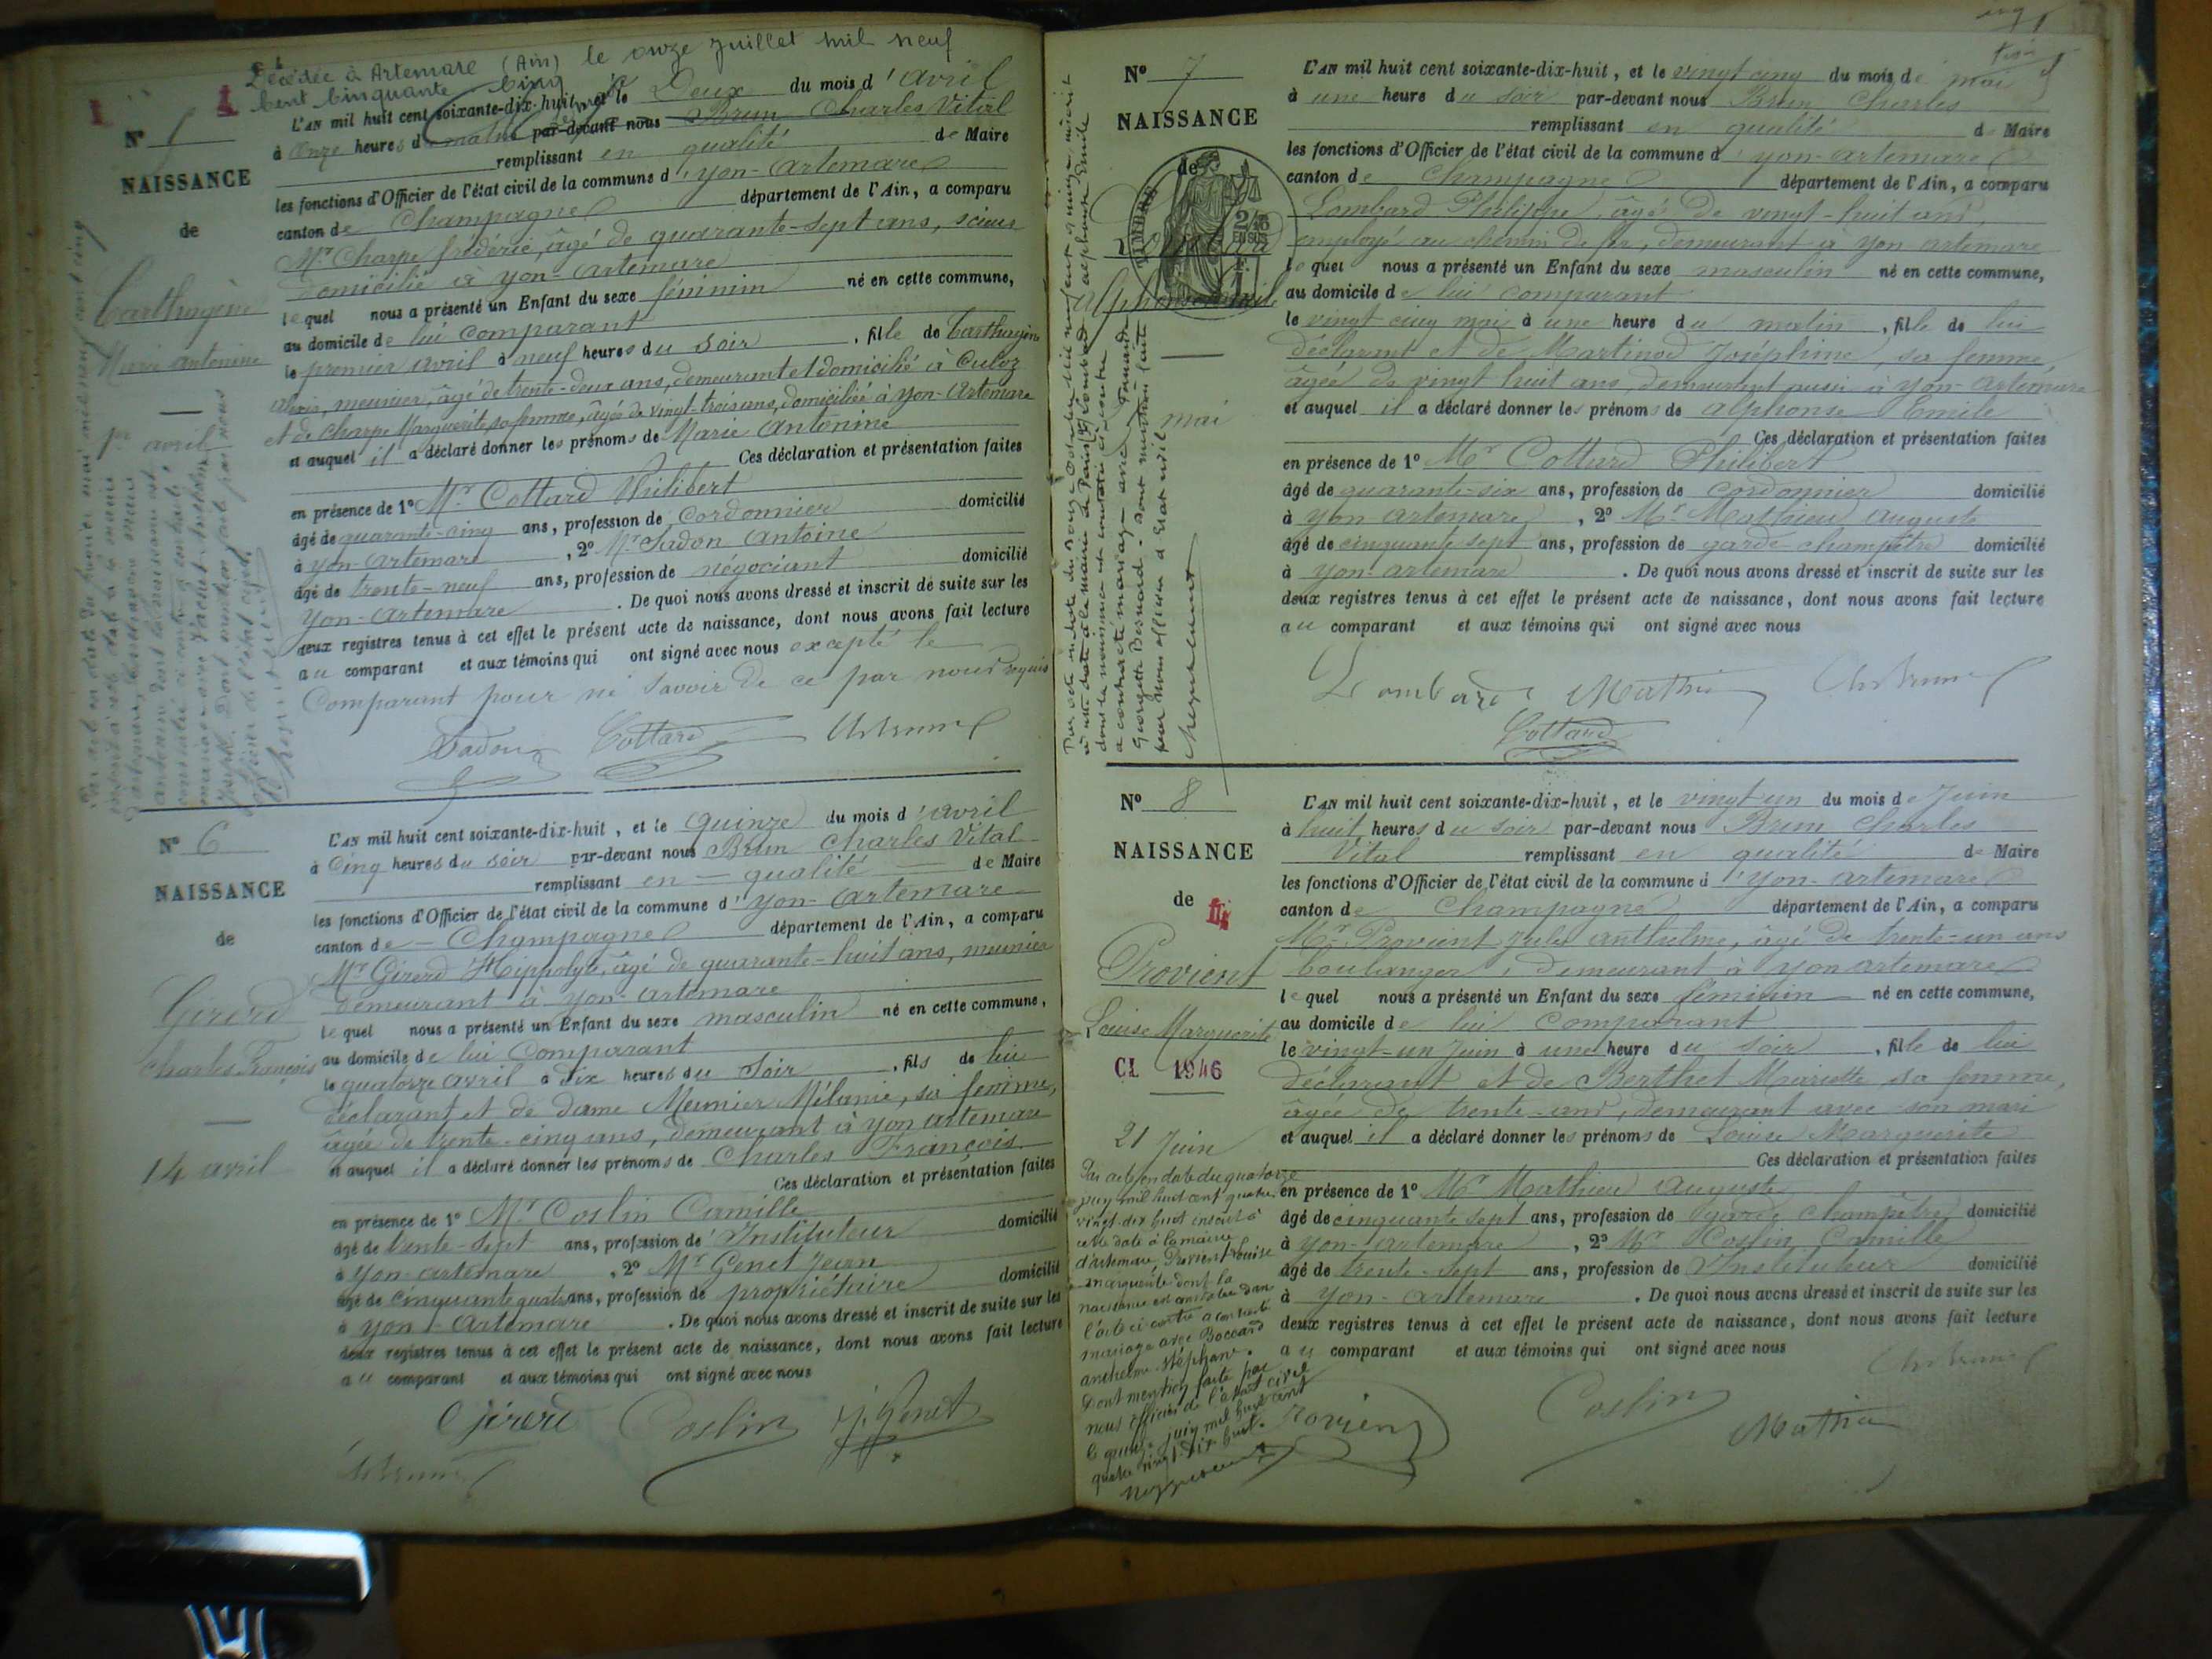 Décédée à Artemare (Ain) le onze Juillet mil neuf
Cent Cinquante Cinq
N°
NAISSANCE
de
Carthagène
Marie Antonine
1er avril
L'AN mil huit cent soixante-dix-huit, et le Deux du mois d'avril
à onze heures d matin par-devant nous Brun Charles Vital
remplissant en qualité de Maire
les fonctions d'Officier de l'état civil de la commune d'yon-artemare
canton de Champagne département de l'Ain, a comparu
Mr Charpe frédéric, âgé de quarante-sept ans, scieur
domicilié à yon-artemare
lequel nous a présenté un Enfant du sexe féminin né en cette commune,
au domicile de lui comparant
le premier avril à neuf heures du soir, fille de Carthagène
Alexis, meunier, âgé de trente-deux ans, demeurant et domicilié à Culoz
et de Charpe Marguerite sa femme, âgée de vingt-trois ans, domiciliée à yon-Artemare
et auquel il a déclaré donner les prénoms de Marie Antonine
Ces déclaration et présentation faites
en présence de 1° Mr Cottard Philibert
âgé de quarante-cinq ans, profession de Cordonnier domicilié
à yon-artemare, 2° Mr Sadon Antoine
âgé de trente-neuf ans, profession de négociant domicilié
yon-artemare. De quoi nous avons dressé et inscrit de suite sur les
deux registres tenus à cet effet le présent acte de naissance, dont nous avons fait lecture
au comparant et aux témoins qui ont signé avec nous excepté le
Comparant pour ne savoir de ce par nous requis
Sadon Cottard Ch Brun
N° 6
NAISSANCE
de
Girerd
Charles François
14 avril
L'AN mil huit cent soixante-dix-huit, et le quinze du mois d'avril
à Cinq heures du soir par-devant nous Brun Charles Vital
remplissant en qualité de Maire
les fonctions d'Officier de l'état civil de la commune d'yon-artemare
canton de Champagne département de l'Ain, a comparu
Mr Girerd Hippolyte, âgé de quarante-huit ans, meunier
demeurant à yon-artemare
lequel nous a présenté un Enfant du sexe masculin né en cette commune,
au domicile de lui Comparant
le quatorze avril à dix heures du soir, fils de lui
déclarant et de dame Meunier Mélanie, sa femme,
âgée de trente-cinq ans, demeurant à yon artemare
et auquel il a déclaré donner les prénoms de Charles François
Ces déclaration et présentation faites
en présence de 1° Mr Coslin Camille
âgé de trente-sept ans, profession de Instituteur domicilié
à yon-artemare, 2° Mr Genet Jean
âgé de cinquante quatre ans, profession de propriétaire domicilié
à yon-artemare. De quoi nous avons dressé et inscrit de suite sur les
deux registres tenus à cet effet le présent acte de naissance, dont nous avons fait lecture
au comparant et aux témoins qui ont signé avec nous
Girerd Coslin J. Genet
Ch Brun
N° 7
NAISSANCE
de
TIMBRE
Alphonse Emile
mai
L'AN mil huit cent soixante-dix-huit, et le vingt cinq du mois de mai
à une heure du soir par-devant nous Brun Charles
remplissant en qualité de Maire
les fonctions d'Officier de l'état civil de la commune d'yon-artemare
canton de Champagne département de l'Ain, a comparu
Lombard Philippe, âgé de vingt-huit ans,
employé au chemin de fer, demeurant à yon-artemare
lequel nous a présenté un Enfant du sexe masculin né en cette commune,
au domicile de lui comparant
le vingt cinq mai à une heure du matin, fils de lui
déclarant et de Martinod Joséphine, sa femme,
âgée de vingt huit ans, demeurant aussi à yon-artemare
et auquel il a déclaré donner les prénoms de Alphonse Emile
Ces déclaration et présentation faites
en présence de 1° Mr Cottard Philibert
âgé de quarante-six ans, profession de cordonnier domicilié
à yon artemare, 2° Mr Mathieu Auguste
âgé de cinquante sept ans, profession de garde champêtre domicilié
à yon-artemare. De quoi nous avons dressé et inscrit de suite sur les
deux registres tenus à cet effet le présent acte de naissance, dont nous avons fait lecture
au comparant et aux témoins qui ont signé avec nous
Lombard Mathieu Ch Brun
Cottard
N° 8
NAISSANCE
de
Provient
Louise Marguerite
CL 1946
21 Juin
Par acte en date du quatorze
juin mil huit cent quatre
vingt dix huit inscrit à
cette date à la mairie
d'artemare, Provient Louise
marguerite dont la
naissance est constatée dans
l'acte ci contre a contracté
mariage avec Boccard
anthelme stéphane.
Dont mention faite par
nous officier de l'état civil
le quinze juin mil huit cent
quatre vingt dix huit.
L'AN mil huit cent soixante-dix-huit, et le vingt un du mois de Juin
à huit heures du soir par-devant nous Brun Charles
Vital remplissant en qualité de Maire
les fonctions d'Officier de l'état civil de la commune d'yon-artemare
canton de Champagne département de l'Ain, a comparu
Mr Provient Jules anthelme, âgé de trente-un ans
boulanger, demeurant à yon artemare
lequel nous a présenté un Enfant du sexe féminin né en cette commune,
au domicile de lui comparant
le vingt-un Juin à une heure du soir, fille de lui
déclarant et de Berthet Mariette sa femme,
âgée de trente-ans, demeurant avec son mari
et auquel il a déclaré donner les prénoms de Louise Marguerite
Ces déclaration et présentation faites
en présence de 1° Mr Mathieu Auguste
âgé de cinquante sept ans, profession de garde champêtre domicilié
à yon-artemare, 2° Mr Coslin Camille
âgé de trente-sept ans, profession de Instituteur domicilié
à yon-artemare. De quoi nous avons dressé et inscrit de suite sur les
deux registres tenus à cet effet le présent acte de naissance, dont nous avons fait lecture
au comparant et aux témoins qui ont signé avec nous
Ch Brun
Provient Coslin Mathieu